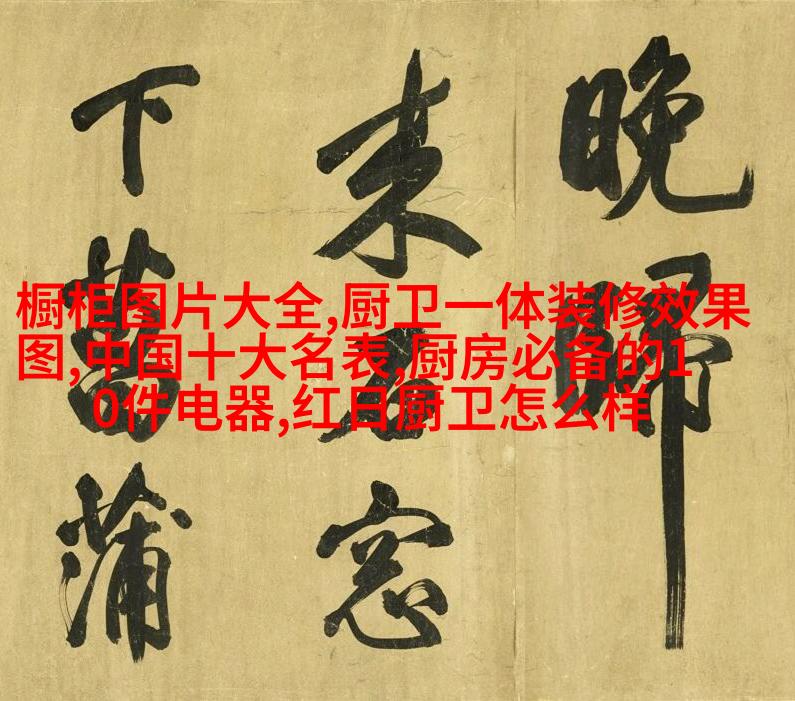 橱柜图片大全,厨卫一体装修效果
图,中国十大名表,厨房必备的1
0件电器,红日厨卫怎么样
晚歸
来石窓
下菖蒲